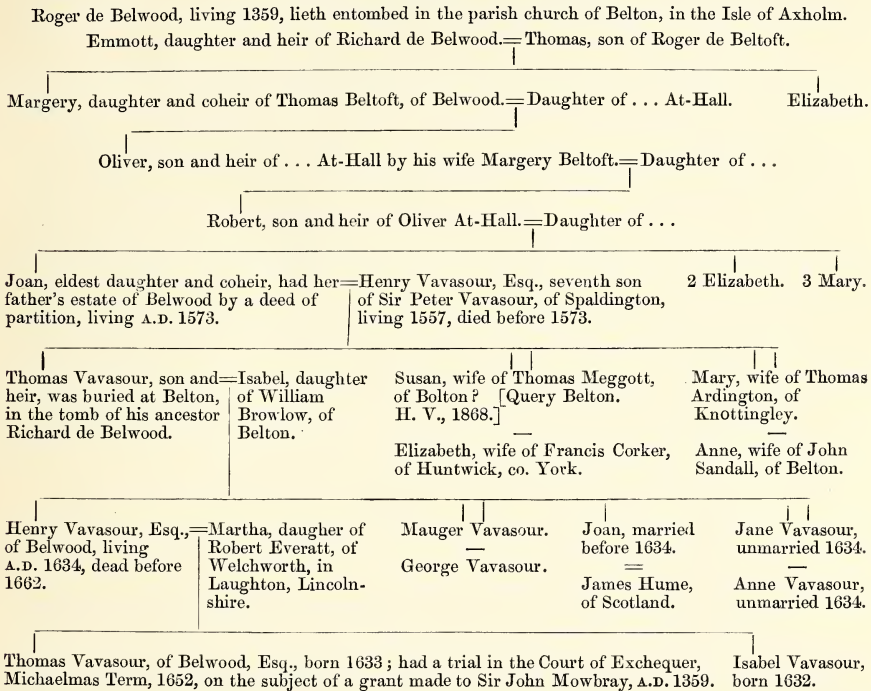 Roger de Belwood, living 1359, lieth entombed in the parish church of Belton, in the Isle of Axholm.
Emmott, daughter and heir of Richard de Belwood.=Thomas, son of Roger de Beltoft.
Margery, daughter and coheir of Thomas Beltoft, of Belwood.=Daughter of . . . At-Hall.
Elizabeth.
Oliver, son and heir of . . . At-Hall by his wife Margery Beltoft.=Daughter of . . .
Robert, son and heir of Oliver At-Hall.=Daughter of . . .
Joan, eldest daughter and coheir, had her=
father's estate of Belwood by a deed of
partition, living A.D. 1573.
Henry Vavasour, Esq., seventh son
of Sir Peter Vavasour, of Spaldington,
living 1557, died before 1573.
2 Elizabeth.
3 Mary.
Thomas Vavasour, son and=
heir, was buried at Belton,
in the tomb of his ancestor
Richard de Belwood.
Isabel, daughter
of William
Browlow, of
Belton.
Susan, wife of Thomas Meggott,
of Bolton? [Query Belton.
H. V., 1868.]
—
Elizabeth, wife of Francis Corker,
of Huntwick, co. York.
Mary, wife of Thomas
Ardington, of
Knottingley.
—
Anne, wife of John
Sandall, of Belton.
Henry Vavasour, Esq.,=
of Belwood, living
A.D. 1634, dead before
1662.
Martha, daugher of
Robert Everatt, of
Welchworth, in
Laughton, Lincoln-
shire.
Mauger Vavasour.
—
George Vavasour.
Joan, married
before 1634.
=
James Hume,
of Scotland.
Jane Vavasour,
unmarried 1634.
—
Anne Vavasour,
unmarried 1634.
Thomas Vavasour, of Belwood, Esq., born 1633; had a trial in the Court of Exchequer,
Michaelmas Term, 1652, on the subject of a grant made to Sir John Mowbray, A.D. 1359.
Isabel Vavasour,
born 1632.